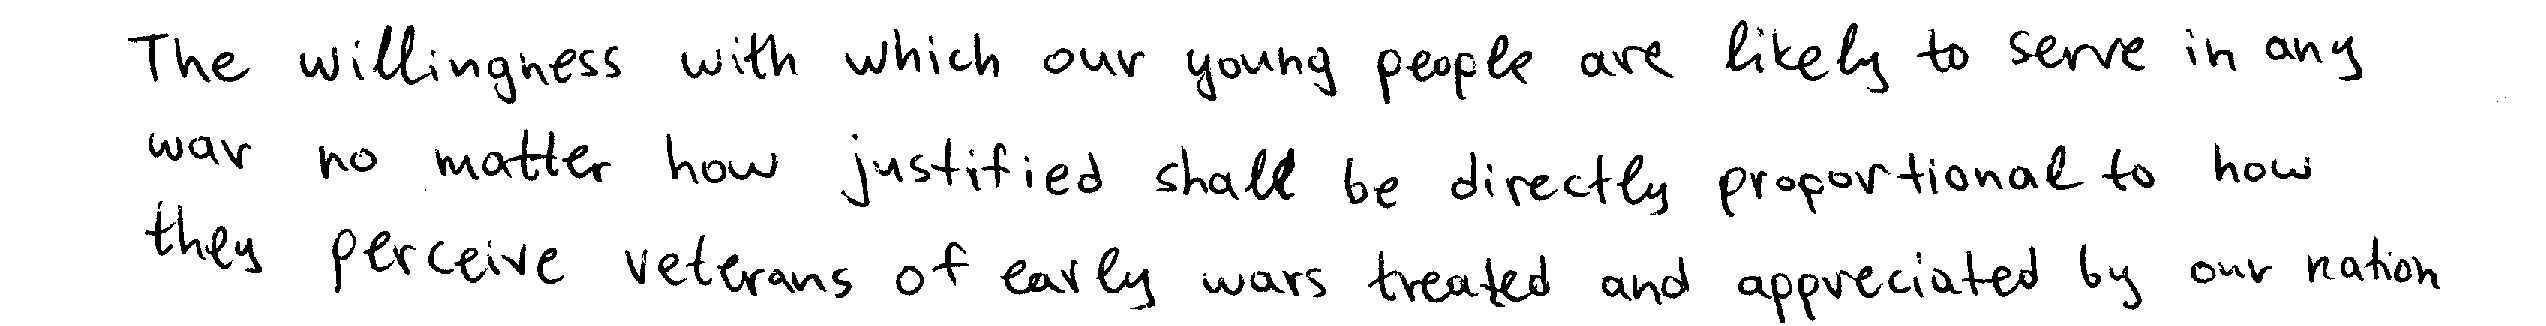 The willingness with which our young people are likely to serve in any
war no matter how justified shall be directly proportional to how
they perceive veterans of early wars treated and appreciated by our nation